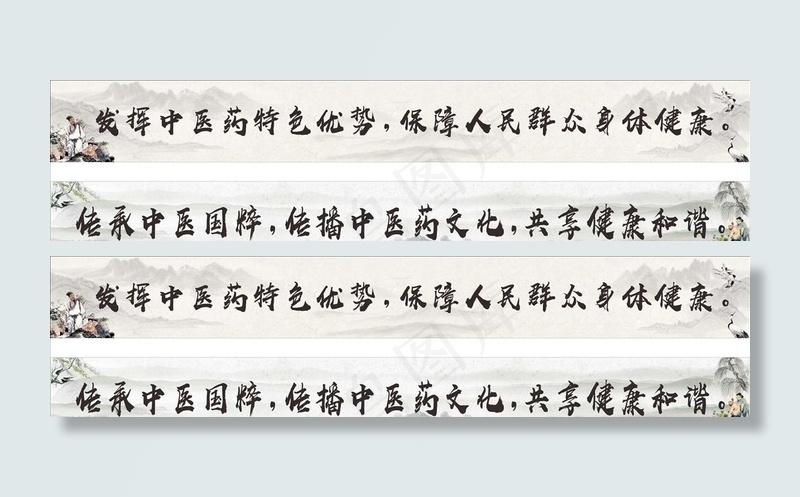 发挥中医药特色优势,保障人民群众身体健康。
传承中医国粹,传播中医药文化,共享健康和谐。
发挥中医药特色优势,保障人民群众身体健康。
传承中医国粹,传播中医药文化,共享健康和谐。